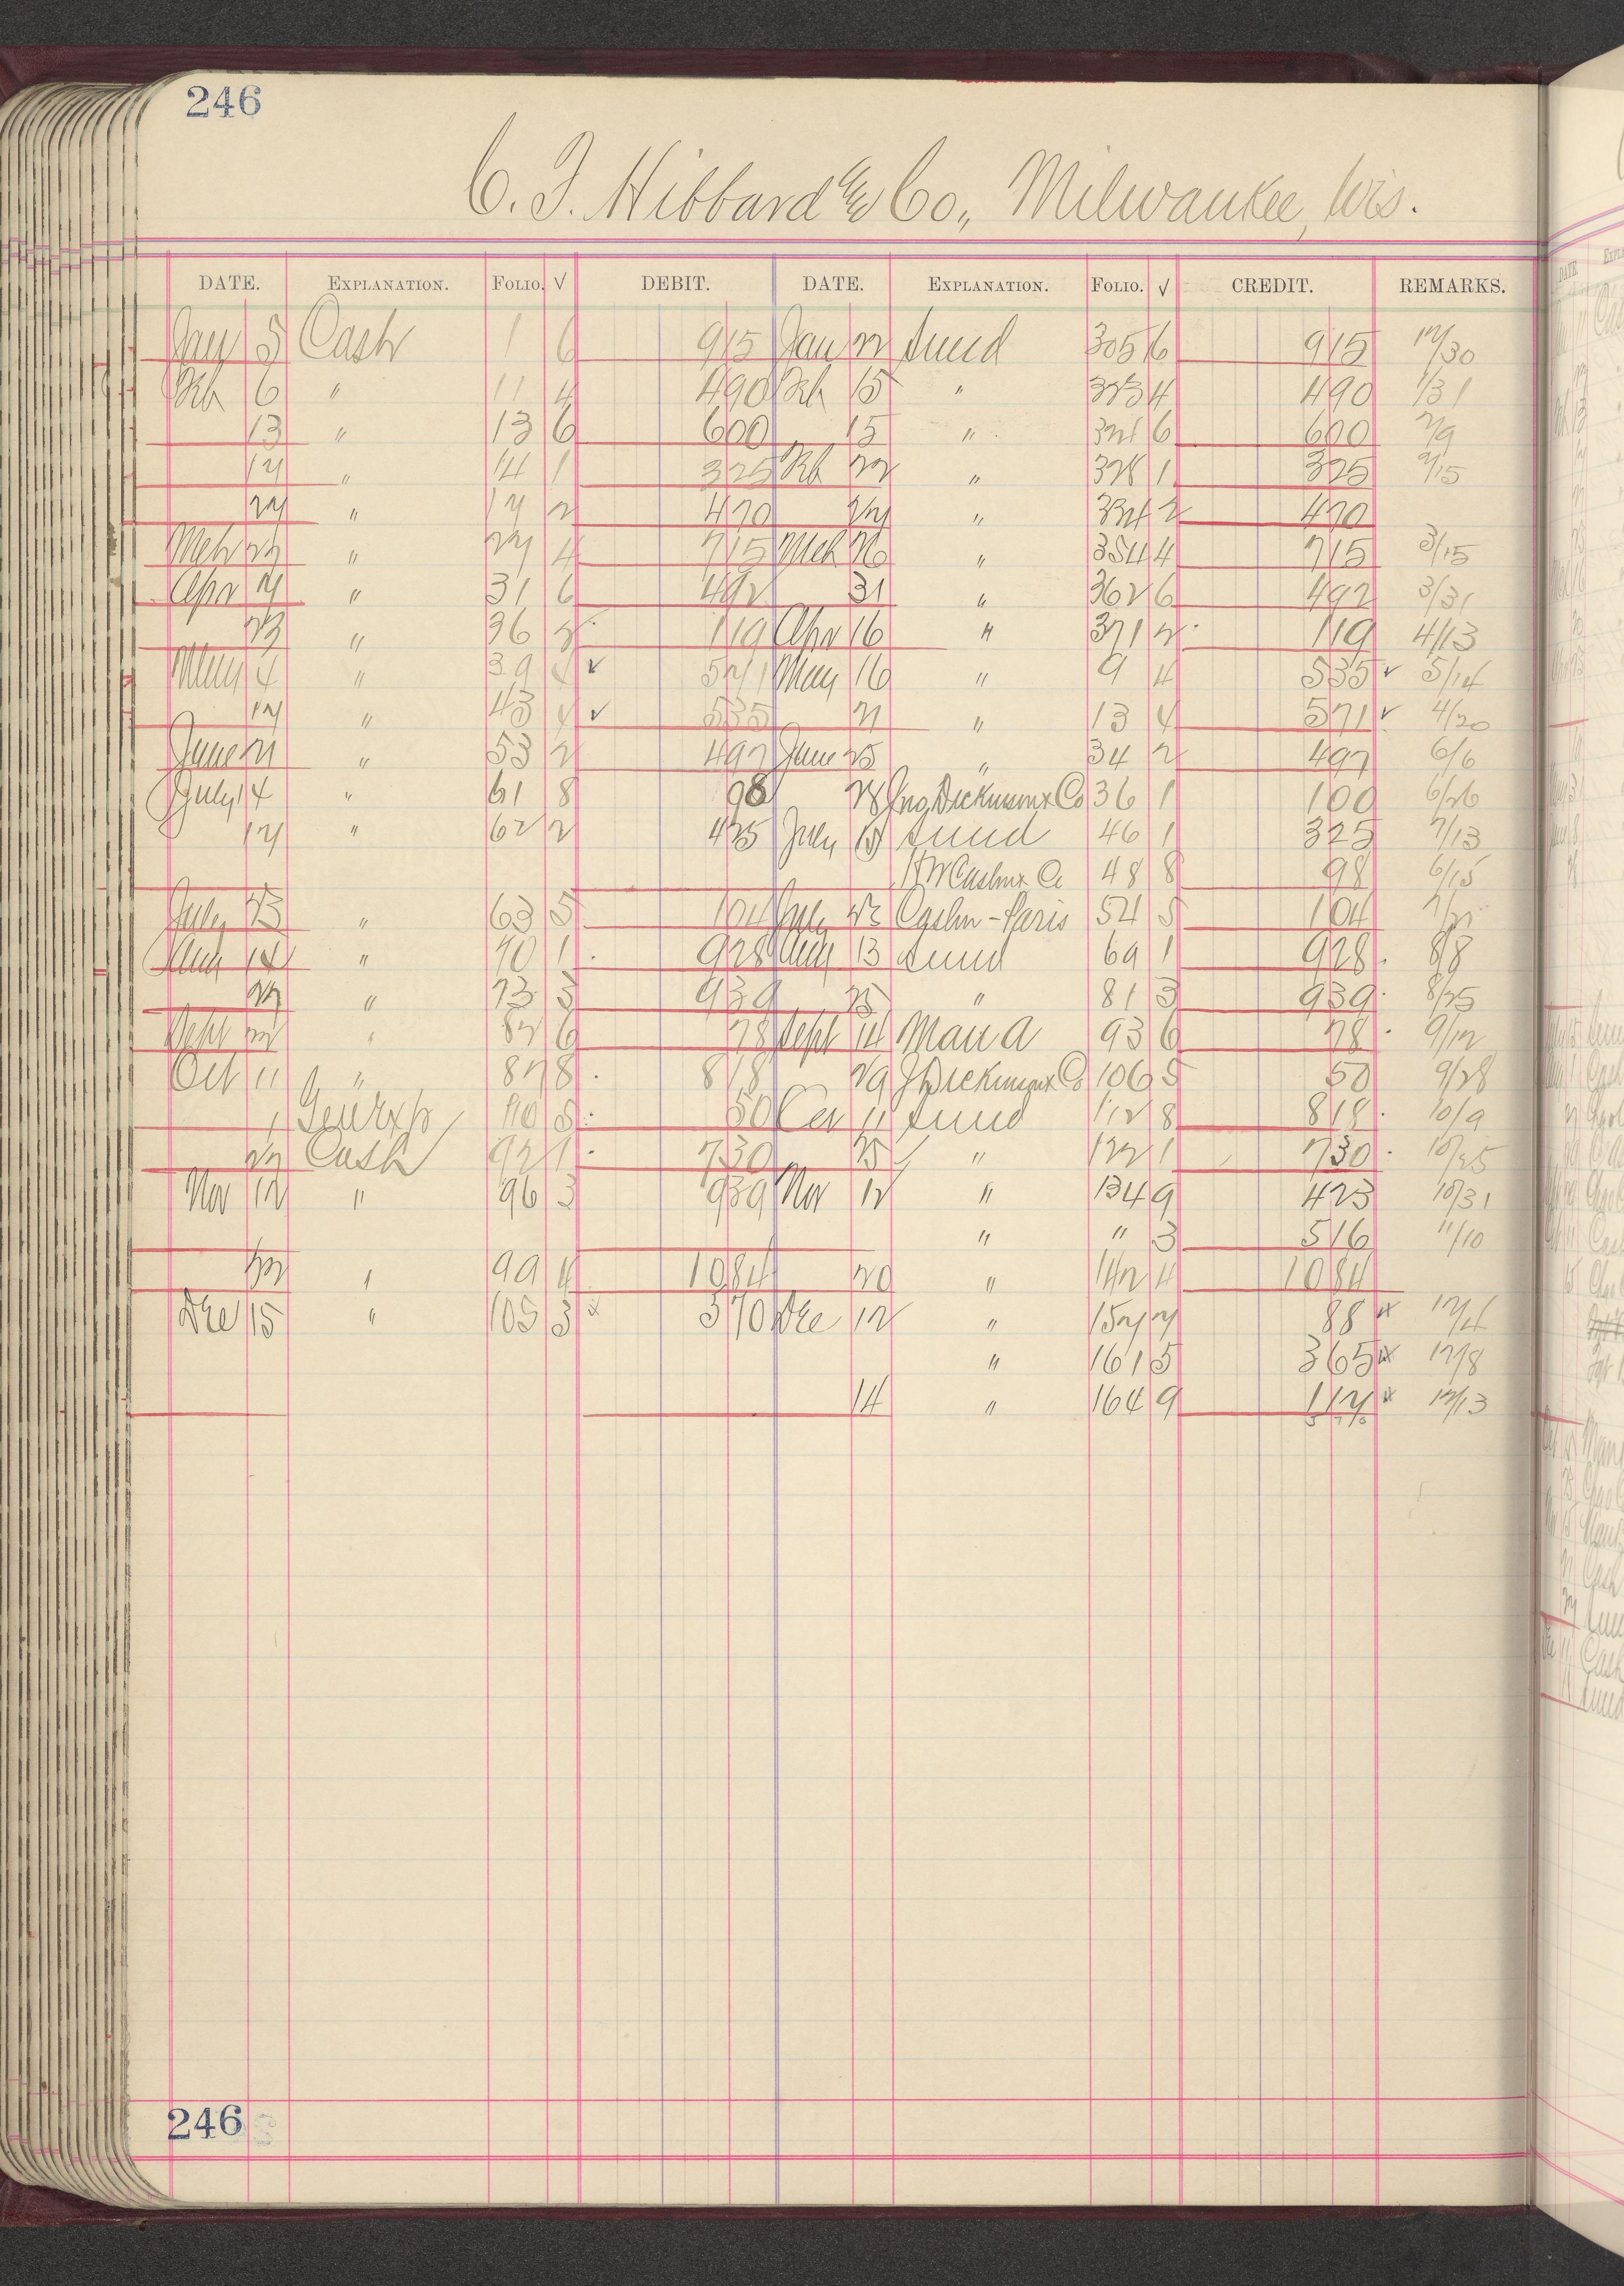 246
C. F. Hibbard & Co., Milwaukee, Wis.
DATE. EXPLANATION. FOLIO. √ DEBIT. DATE. EXPLANATION. FOLIO. √ CREDIT. REMARKS.
Jan 5 Cash 1 6 9 15 Jan 22 Sund 305 6 9 15 12/30
Feb 6 " 11 4 4 90 Feb 15 " 323 4 4 90 1/31
13 " 13 6 6 00 15 " 6 6 00 2/9
17 " 14 1 3 25 Feb 22 " 328 1 3 25 2/15
27 " 17 2 4 70 27 " 2 4 70
Mch 27 " 27 4 7 15 Mch 26 " 354 4 7 15 3/15
Apr 7 " 31 6 4 92 31 " 362 6 4 92 3/31
23 " 36 2 1 19 Apr 16 " 371 2 1 19 4/13
May 4 " 39 4 √ 5 71 May 16 " 9 4 5 35 √ 5/14
17 " 43 4 √ 5 35 21 " 13 4 5 71 √ 4/20
June 21 " 53 2 4 97 June 25 " 34 2 4 97 6/6
July 14 " 61 8 98 28 Jno Dickinson & Co 36 1 1 00 6/26
17 " 62 2 4 25 July 18 Sund 46 1 3 25 7/13
48 8 98 6/15
July 23 " 63 5 1 04 July 23 Cashn - Paris 54 5 1 04 7/21
Aug 14 " 70 1 9 28 Aug 13 Sund 69 1 9 28 8/8
27 " 73 3 9 39 25 " 81 3 9 39 8/25
Sept 22 " 82 6 78 Sept 14 Man A 93 6 78 9/12
Oct 11 " 87 8 8 18 29 J Dickinson & Co 106 5 50 9/28
1 Gen Exp 90 5 50 Oct 11 Sund 112 8 8 18 10/9
27 Cash 92 1 7 30 25 " 122 1 7 30 10/25
Nov 12 " 96 3 9 39 Nov 12 " 134 9 4 23 10/31
" " 3 5 16 11/10
22 " 99 4 10 84 20 " 142 4 10 84
Dec 15 " 105 3 5 70 Dec 12 " 157 7 88 12/4
" 161 5 3 65 12/8
14 " 164 9 1 17 12/13
246